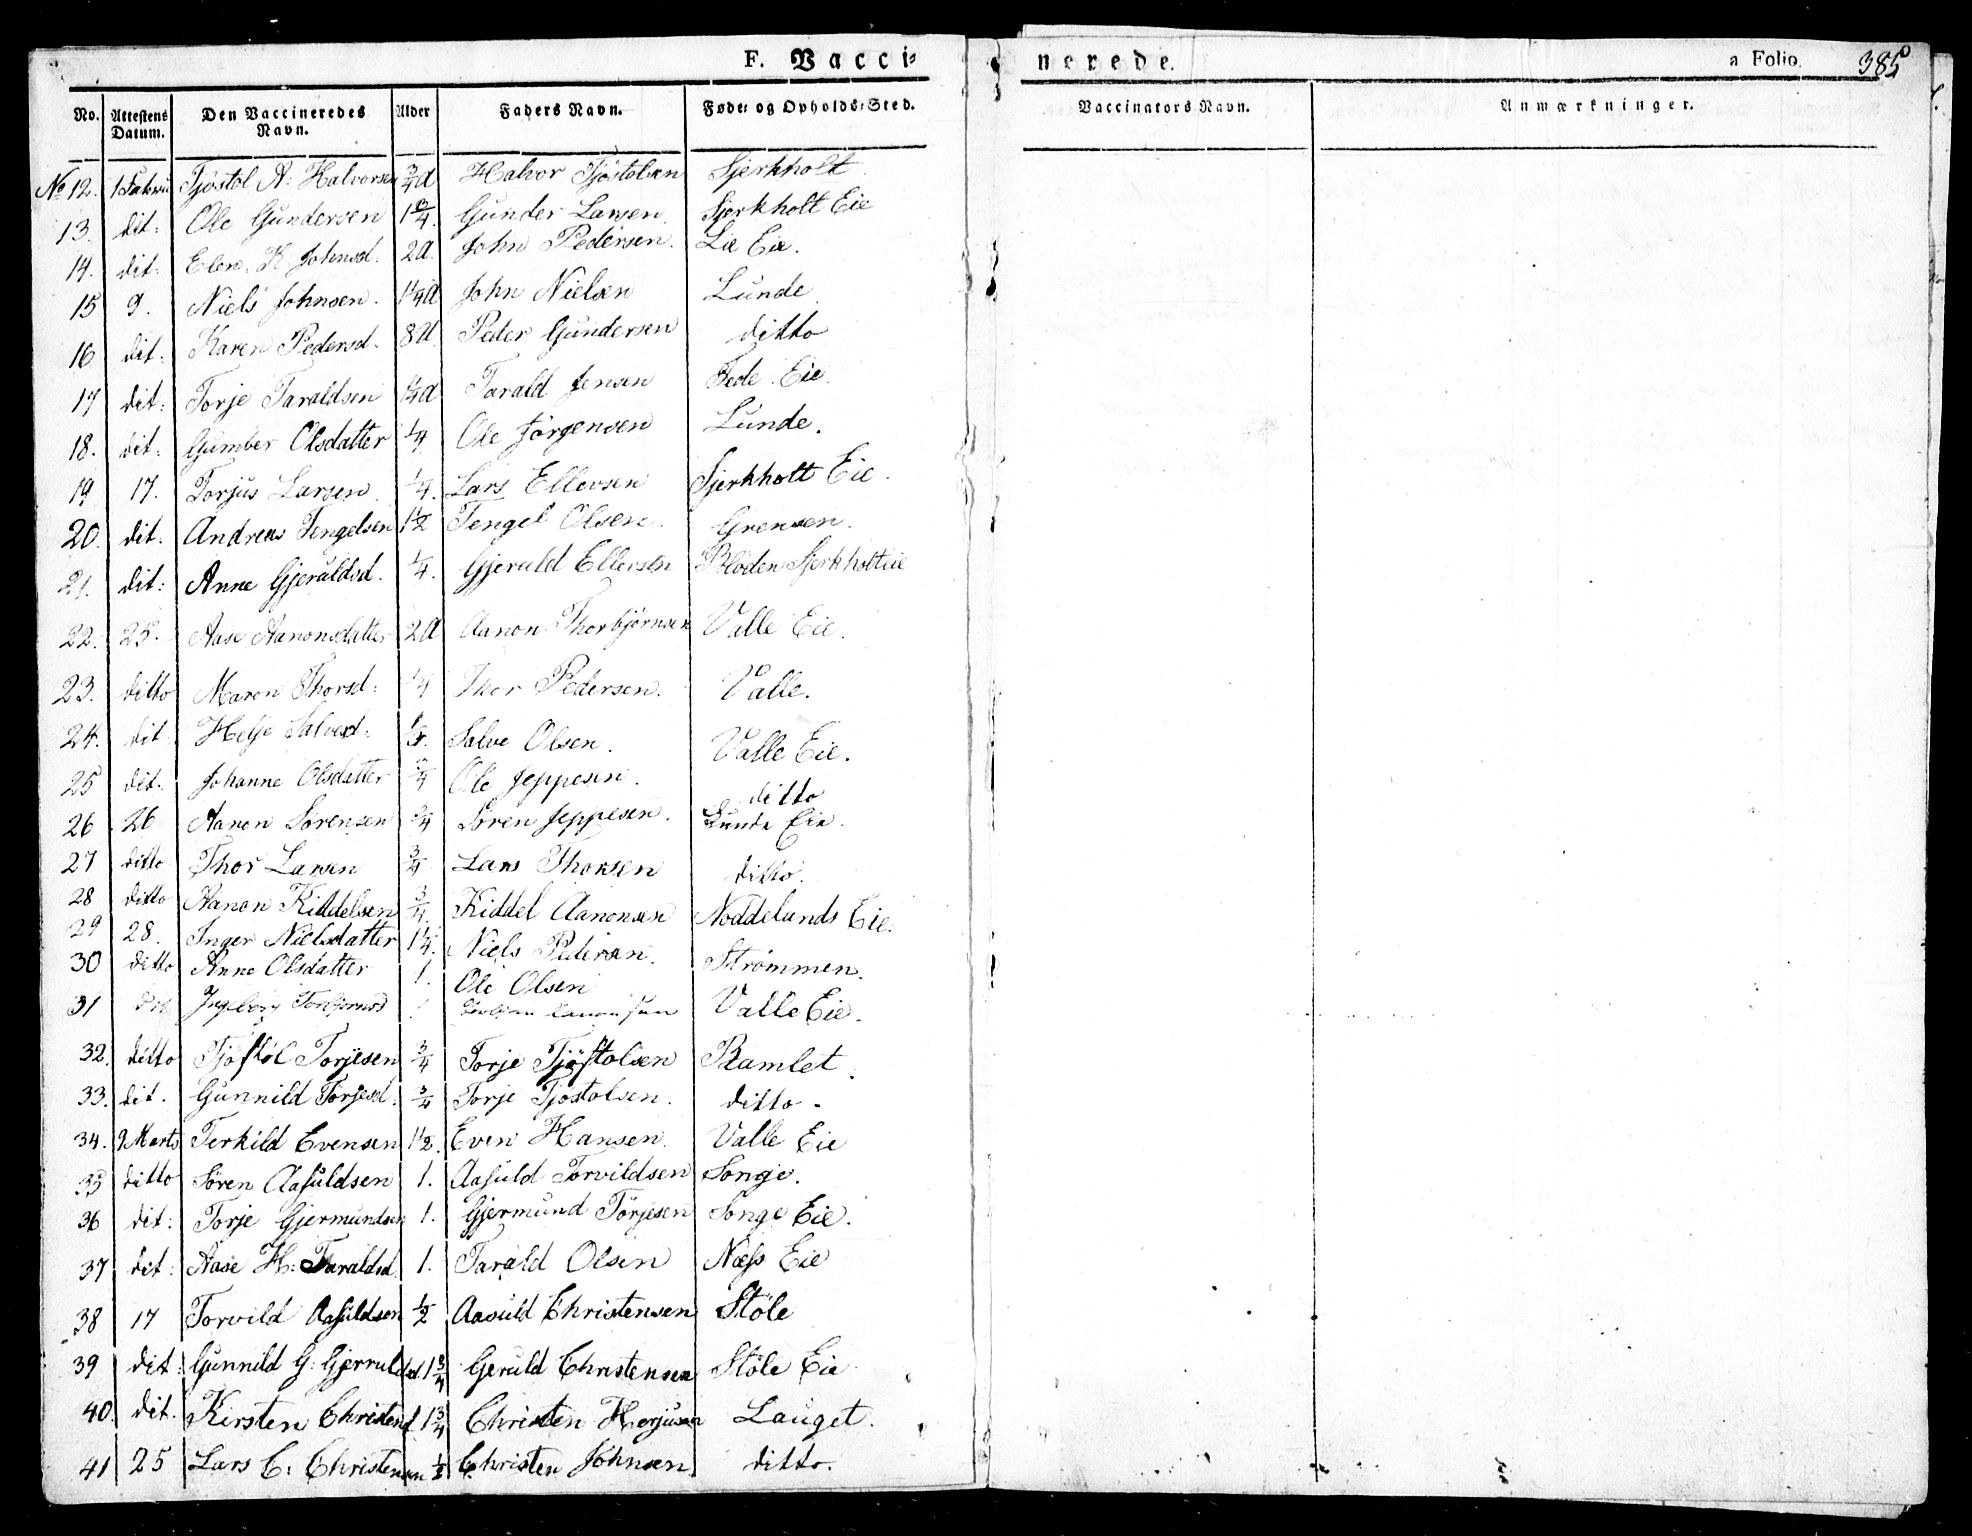 F. Vacci-
nerede.
a Folio. 385
No. Attestens Datum. Den Vaccineredes Navn. Alder Faders Navn. Føde- og Opholds-Sted. Vaccinators Navn. Anmærkninger.
No 12. 1 Tjöstol A: Halvorsen 3/4 a Halvor Tjöstolsen Sjerkholt
13. dit: Ole Gundersen 1 Gunder Larsen Sjerkholt Eie
14. dit: Elen K Johnsd. 2 a. John Pedersen. Lie Eie.
15 9. Niels Johnsen. 1 1/4 a John Nielsen Lunde
16 dit: Karen Pedersd. 8 a Peder Gundersen ditto
17 dit: Torje Taraldsen 1/4 a Tarald Jensen Eie.
18. dit: Gumber Olsdatter 1/4 Ole Jörgensen Lunde.
19 17. Torjus Larsen 1/4. Lars Ellevsen Sjerkholt Eie.
20. dit. Andreas Tengelsen 1 1/2 Tengel Olsen. Grensen.
21. dit: Anne Gjeruldsd. 1/4. Gjeruld Ellevsen Blöden Sjerkholteie
22. 25. Aase Aanonsdatter 2 a Aanon Thorbjörnsen Valle Eie.
23. ditto Maren Thorsd: 1/4 Thor Pedersen. Valle.
24. dit Helje Salvesd: Salve Olsen. Valle Eie.
25 dit. Johanne Olsdatter Ole Jeppesen. ditto
26 26 Aanon Sörensen 3/4 Sören Jeppesen. Lunde Eie.
27 ditto Thor Larsen 3/4 Lars Thorsen ditto.
28 ditto Aanon Kiddelsen 3/4. Kiddel Aanonsen Noddelunds Eie.
29 28. Inger Nielsdatter 1 1/4. Niels Pedersen. Strömmen.
30 ditto Anne Olsdatter 1. Ole Olsen Valle Eie.
31 dit Ingeborg Torbjörnsd
32. ditto Tjöstöl Torjesen 3/4 Torje Tjöstolsen Ramlet.
33. dit. Gunnild Torjesd. 3/4 Torje Tjostolsen. ditto.
34. 9 Marts Terkild Evensen 1 1/2. Even Hansen. Valle Eie
35 ditto Sören Aasuldsen 1. Aasuld Torvildsen Songe.
36 dit: Torje Gjermundsen 1. Gjermund Törjesen Songe Eie.
37 dit: Aase H: Taraldsd. 1. Tarald Olsen Næss Eie
38 17 Torvild Aasuldsen 1/2 Aasuld Christensen Stöle
39 dit: Gunnild G: Gjerruldsd. 1 3/4 Geruld Christensen Stöle Eie
40. dit. Kirsten Christend. 1 3/4 Christen Herjusen Lauget.
41 25 Lars C: Christensen 1/2 Christen Johnsen. ditto.